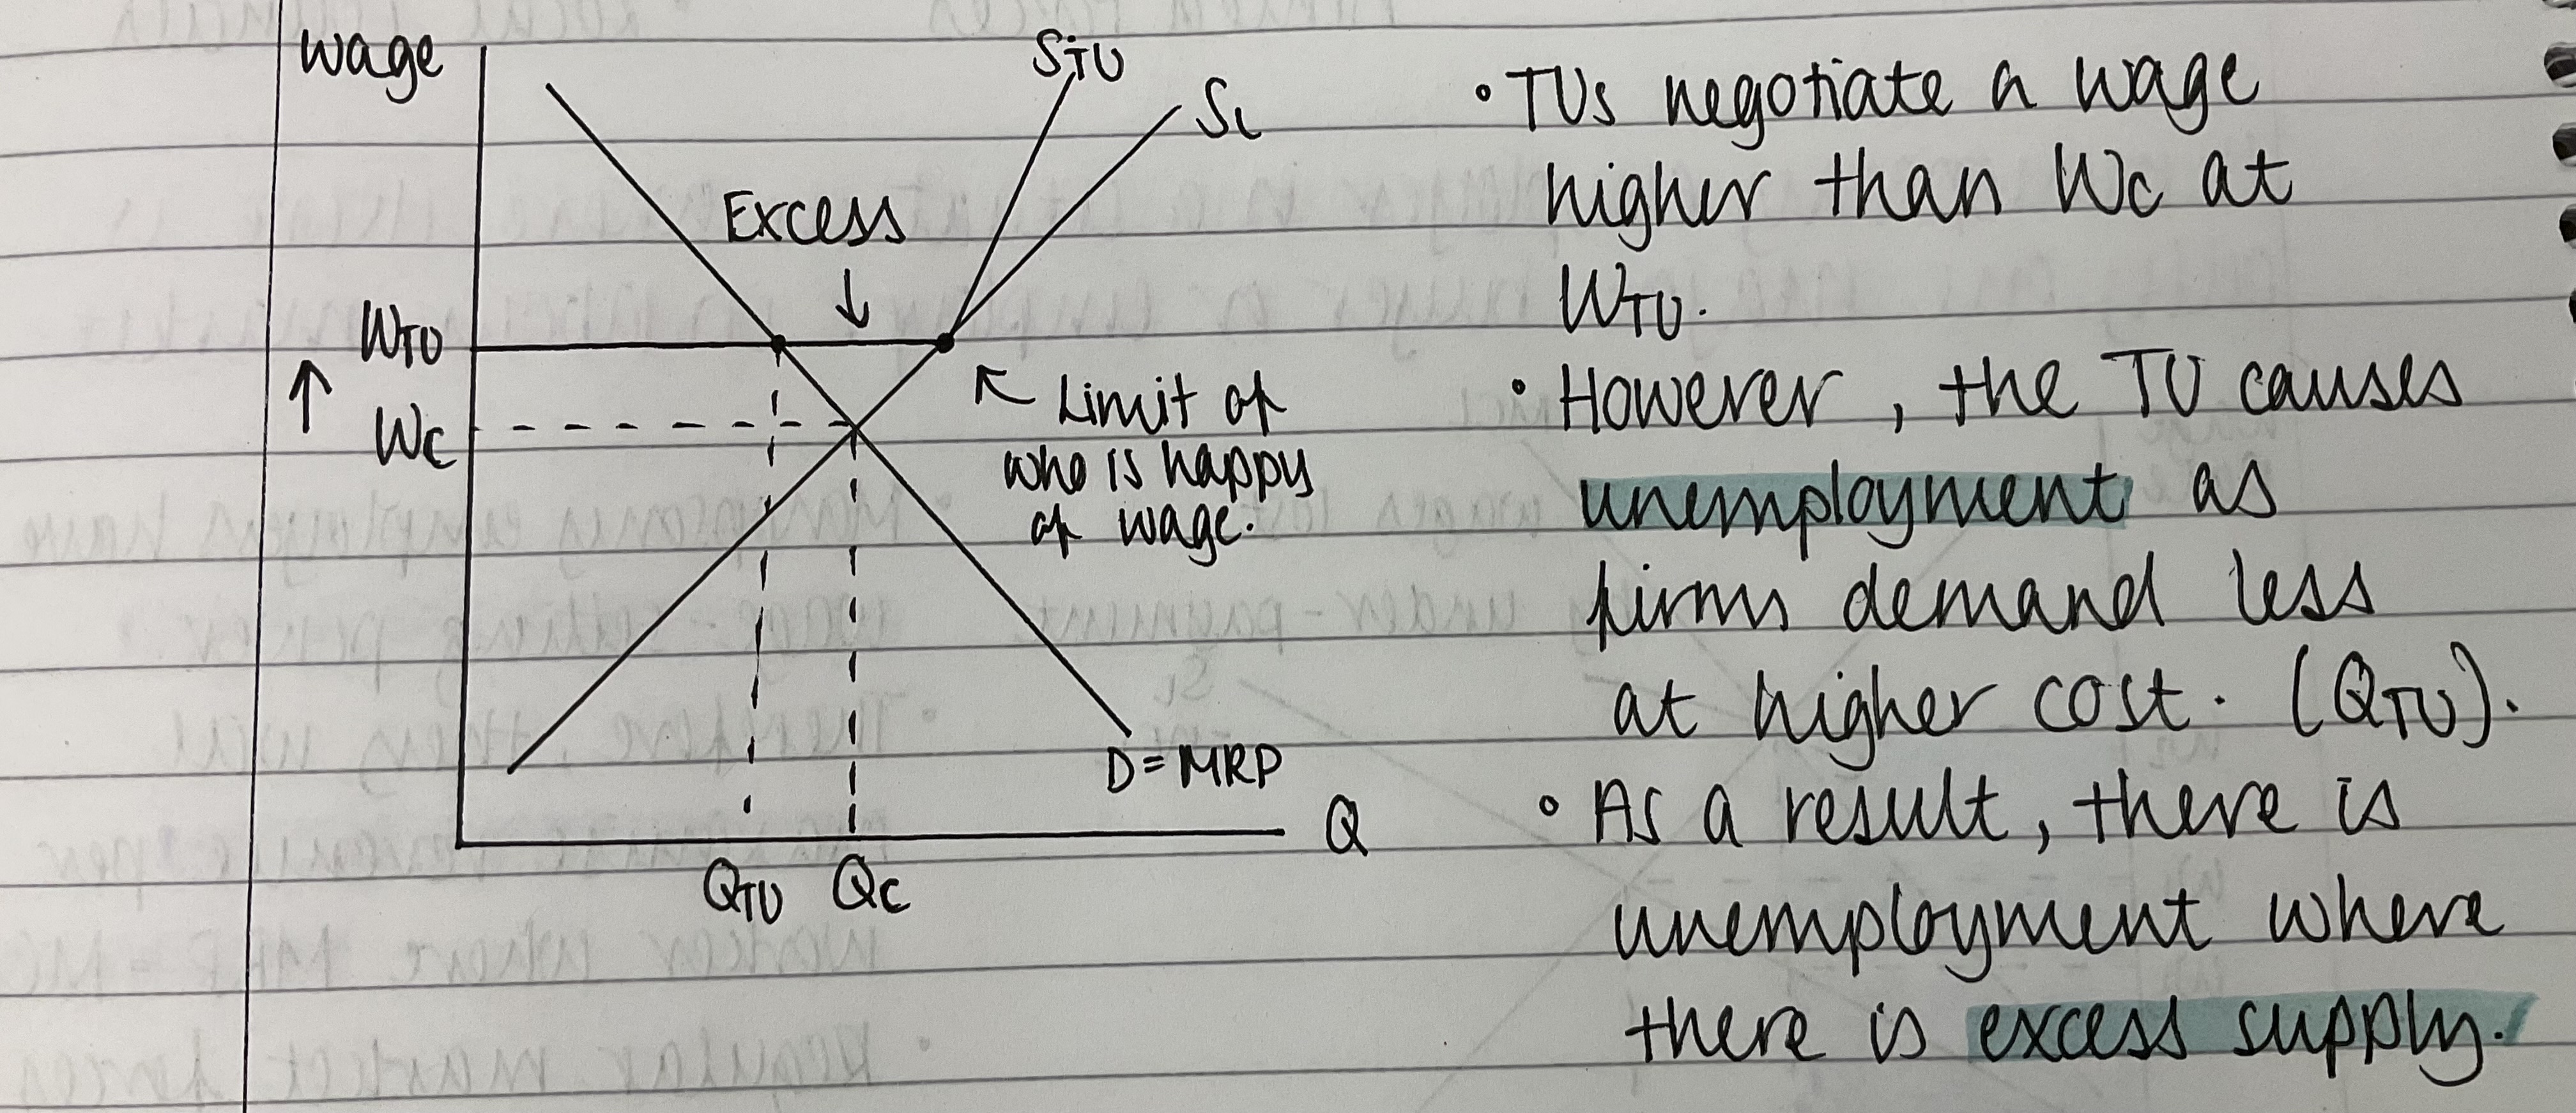 wage
STU
SL
Excess
WTU
↑
WC
↖ Limit of
who is happy
of wage.
D=MRP
Q
QTU QC
• TUs negotiate a wage
higher than WC at
WTU.
• However, the TU causes
unemployment as
firms demand less
at higher cost. (QTU).
• As a result, there is
unemployment where
there is excess supply.